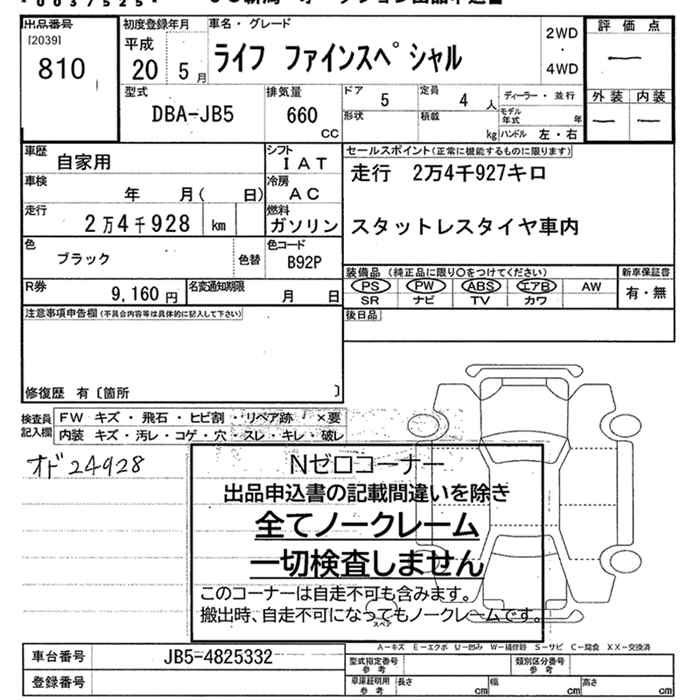 出品番号
[2039]
810
初度登録年月
平成
20 5 月
車名・グレード
ライフ ファインスペシャル
2WD
・
4WD
評価点
―
外装 内装
― ―
型式
DBA-JB5
排気量
660
CC
ドア
5
定員
4 人
ディーラー・並行
形状
積載
kg
モデル年式 年
ハンドル 左・右
車歴
自家用
シフト
IAT
車検
年 月( 日)
冷房
AC
走行
2万4千928 km
燃料
ガソリン
色
ブラック
色替
色コード
B92P
R券
9,160 円
名変通知期限
月 日
セールスポイント(正常に機能するものに限ります)
走行 2万4千927キロ
スタットレスタイヤ車内
装備品(純正品に限り○をつけてください)
PS PW ABS エアB AW
SR ナビ TV カワ
新車保証書
有・無
注意事項申告欄(不具合内容等は具体的に記入して下さい)
後日品
修復歴 有〔箇所 〕
検査員
記入欄
FW キズ・飛石・ヒビ割・リペア跡 ×要
内装 キズ・汚レ・コゲ・穴・スレ・キレ・破レ
オド24928
Nゼロコーナー
出品申込書の記載間違いを除き
全てノークレーム
一切検査しません
このコーナーは自走不可も含みます。
搬出時、自走不可になってもノークレームです。
スペア
A－キズ E－エクボ U－凹み W－補修跡 S－サビ C－腐食 XX－交換済
車台番号
JB5-4825332
登録番号
型式指定番号
参考
類別区分番号
参考
車庫証明用
参考
長さ cm
幅 cm
高さ cm